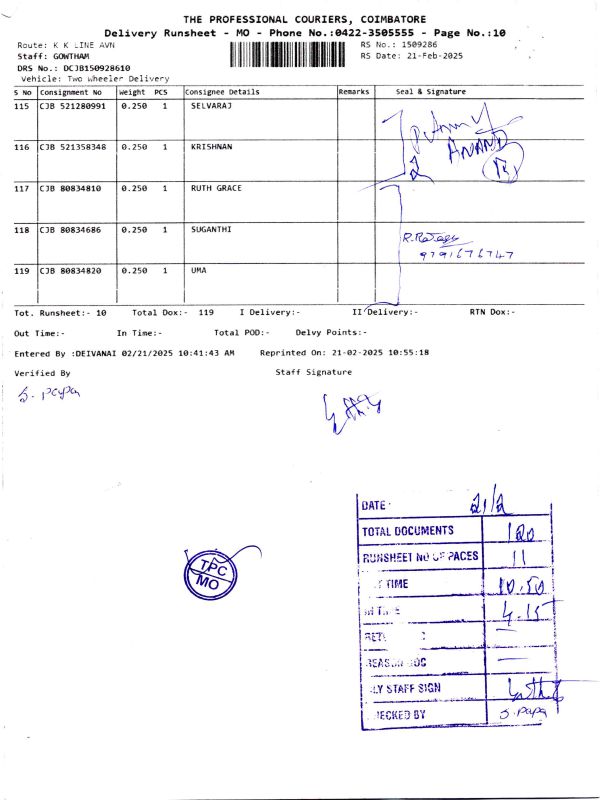 THE PROFESSIONAL COURIERS, COIMBATORE
Delivery Runsheet - MO - Phone No.:0422-3505555 - Page No.:10
Route: K K LINE AVN RS No.: 1509286
Staff: GOWTHAM RS Date: 21-Feb-2025
DRS No.: DCJB150928610
Vehicle: Two Wheeler Delivery
S No Consignment No Weight PCS Consignee Details Remarks Seal & Signature
115 CJB 521280991 0.250 1 SELVARAJ
116 CJB 521358348 0.250 1 KRISHNAN
ANAND
117 CJB 80834810 0.250 1 RUTH GRACE
118 CJB 80834686 0.250 1 SUGANTHI
9791676747
119 CJB 80834820 0.250 1 UMA
Tot. Runsheet:- 10 Total Dox:- 119 I Delivery:- II Delivery:- RTN Dox:-
Out Time:- In Time:- Total POD:- Delvy Points:-
Entered By :DEIVANAI 02/21/2025 10:41:43 AM Reprinted On: 21-02-2025 10:55:18
Verified By Staff Signature
S. Papa
DATE 21/2
TOTAL DOCUMENTS 120
RUNSHEET NO OF PAGES 11
TIME 10.50
4.15
STAFF SIGN
CHECKED BY S. Papa
TPC
MO